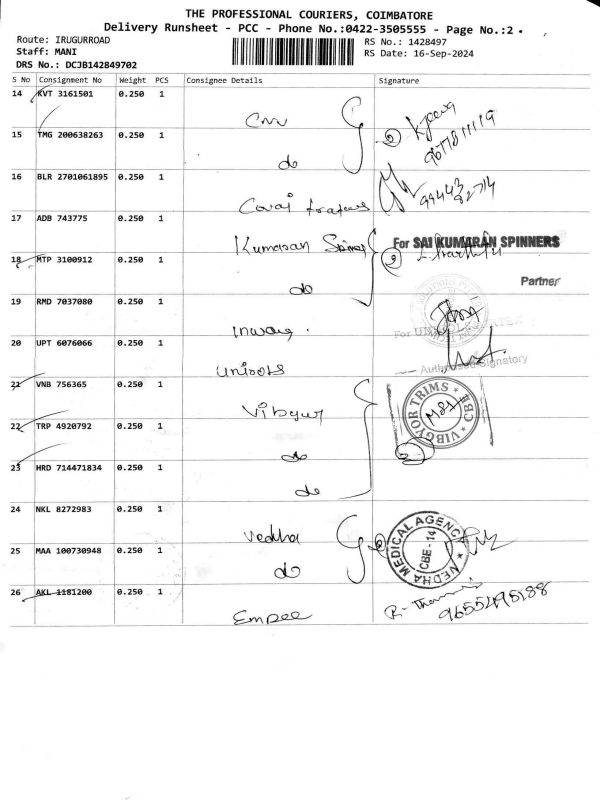 THE PROFESSIONAL COURIERS, COIMBATORE
Delivery Runsheet - PCC - Phone No.:0422-3505555 - Page No.:2
Route: IRUGURROAD
RS No.: 1428497
Staff: MANI
RS Date: 16-Sep-2024
DRS No.: DCJB142849702
S No Consignment No Weight PCS Consignee Details Signature
14 KVT 3161501 0.250 1
15 TMG 200638263 0.250 1
do
16 BLR 2701061895 0.250 1
99443
82714
17 ADB 743775 0.250 1
Kumaran
For SAI KUMARAN SPINNERS
18 MTP 3100912 0.250 1
do
Partner
19 RMD 7037080 0.250 1
20 UPT 6076066 0.250 1
Authorised Signatory
21 VNB 756365 0.250 1
Vibgyor
VIBGYOR TRIMS * CBE *
22 TRP 4920792 0.250 1
do
23 HRD 714471834 0.250 1
do
24 NKL 8272983 0.250 1
Vedha
VEDHA MEDICAL AGENCY
CBE - 14
25 MAA 100730948 0.250 1
do
26 AKL 1181200 0.250 1
Empee
9655498188